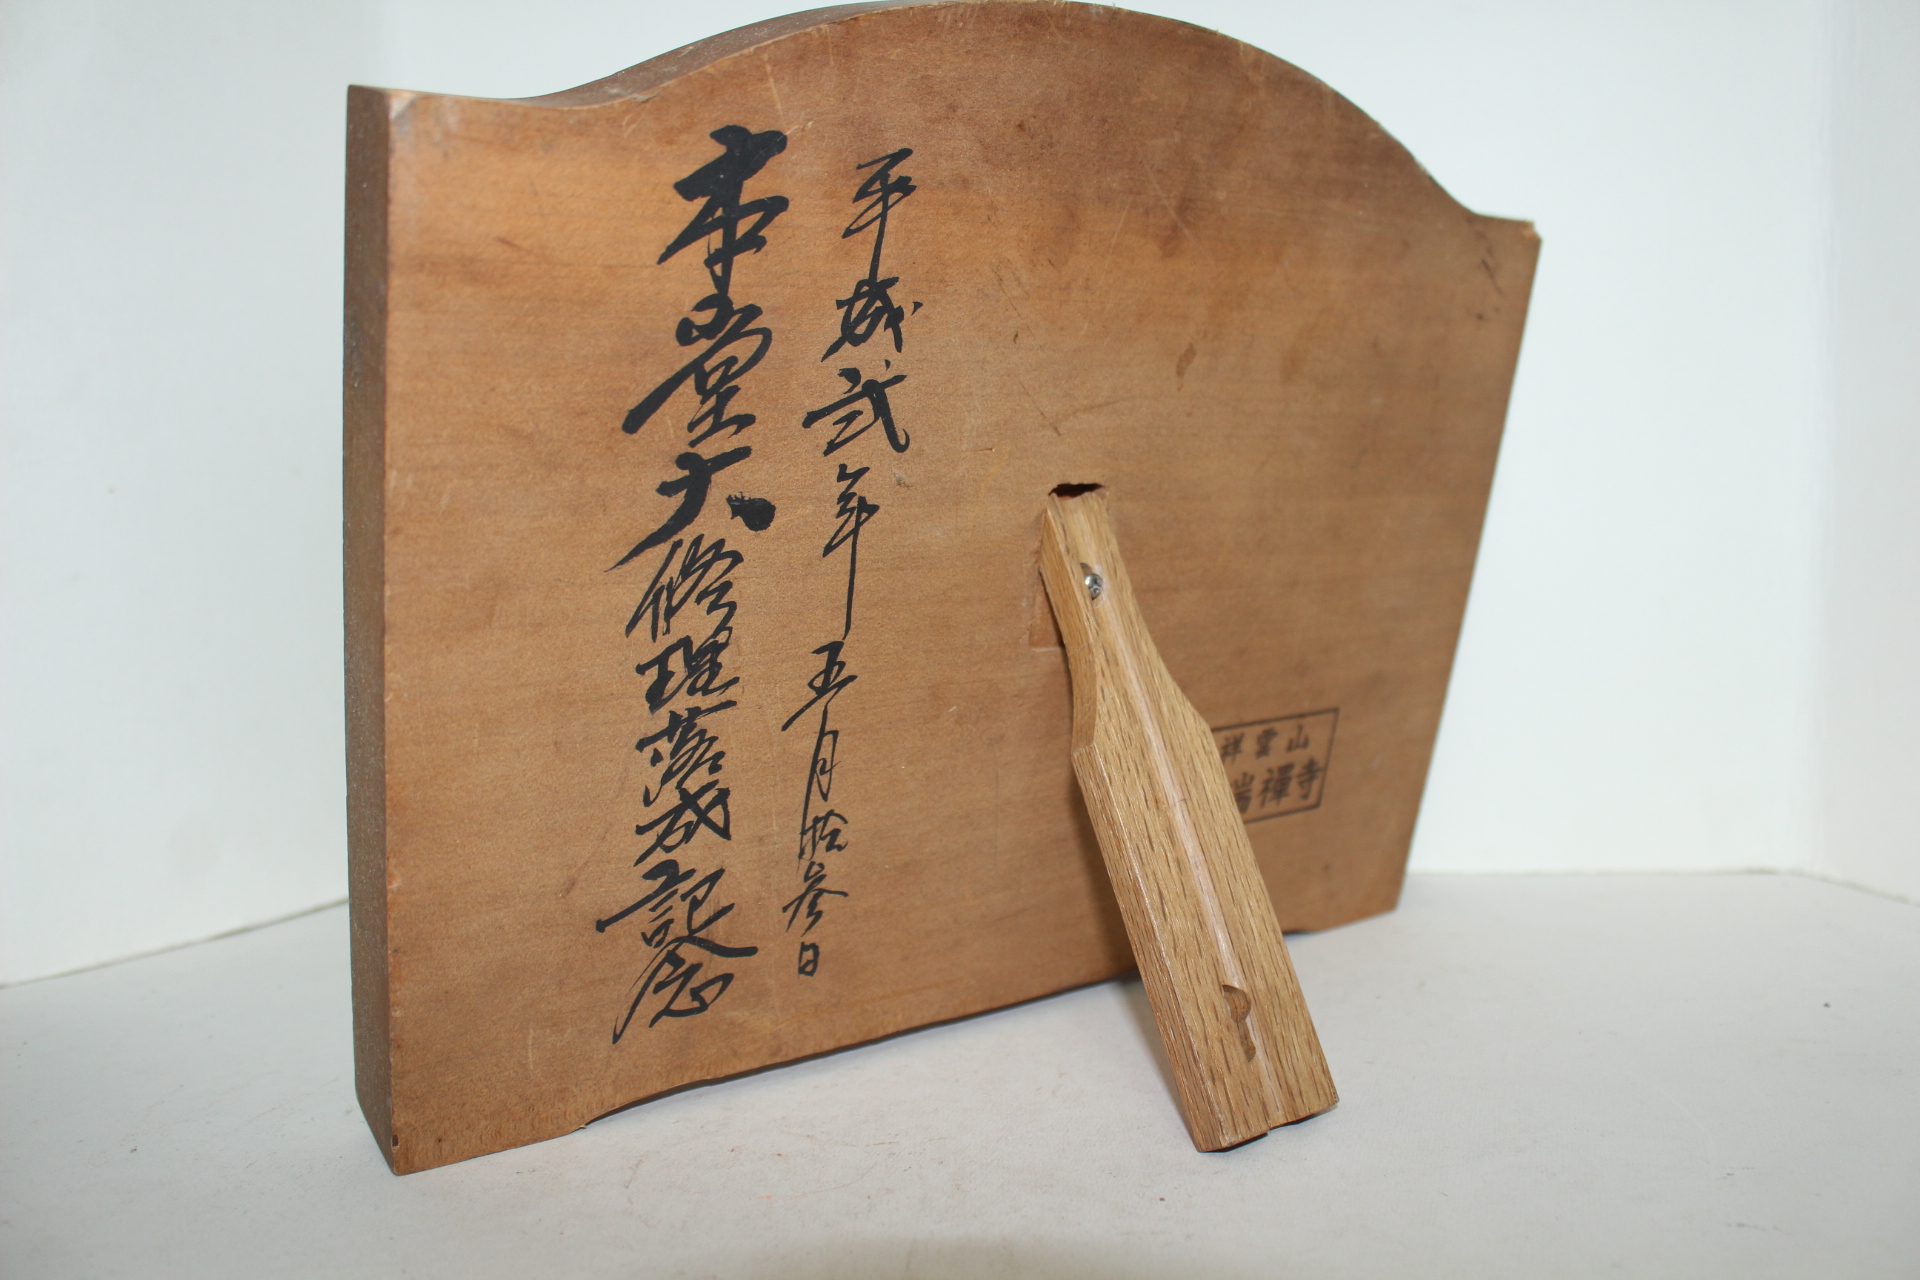 平成弐年五月拾参日
本堂大修理落成記念
祥雲山
瑞禪寺